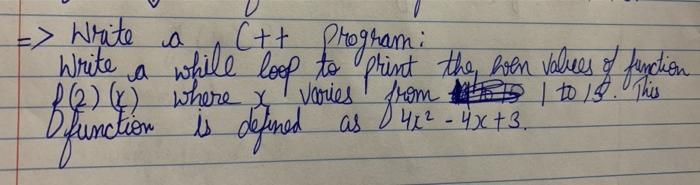 => Write a C++ Program:
Write a while loop to print the even values of function
f(2)(x) where x varies from 1 to 15. This
function is defined as 4x² - 4x + 3.